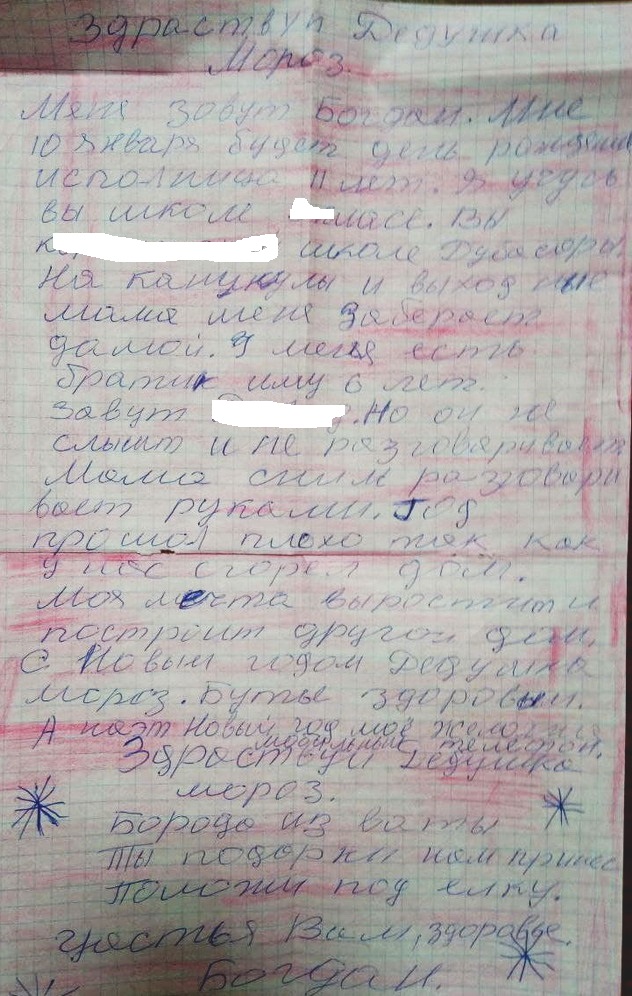 Здраствуй Дедушка
Мороз.
Меня зовут Богдан. Мне
10 января будет день рождения
исполница 11 лет. Я учусь
вы школе ласе. Вы
к школе Дубасары.
На канукулы и выходные
мама меня заберает
дамой. У меня есть
братик иму 6 лет.
Завут . Но он не
слышит и не разговаривает
Мама сним разговари
вает руками. Год
прошол плохо так как
у нас сгорел дом.
Моя мечта выростити
построит другой дом.
С Новым годом Дедушка
мороз. Буты здоровым.
А наэт Новый год моё желания
мобильный телефон.
Здраствуй Дедушка
мороз.
Борода из ваты
Ты подарки нам принес
Положи под елку.
щястья Вам, здоровье.
Богдан.